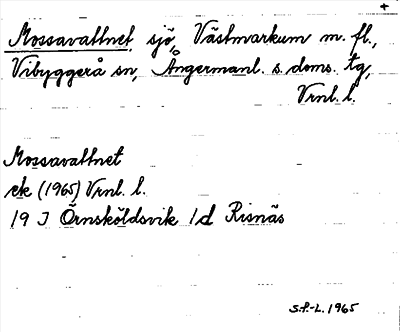 Mossavattnet, sjö, Västmarkum m. fl.,
Vibyggerå sn, Ångermanl. s. doms. tg,
Vrnl. l.
Mossavattnet
ek (1965) Vrnl. l.
19 J Örnsköldsvik 1d Risnäs
S.P.-L. 1965